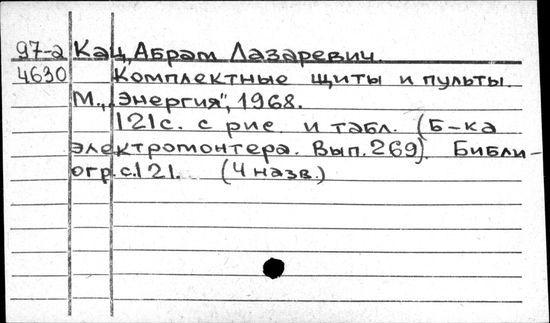 97-2 Кац, Абрам Лазаревич.
4630 Комплектные щиты и пульты.
М., „Энергия", 1968.
121 с. с рис. и табл. (Б-ка
электромонтера. Вып. 269). Библи-
огр. с. 121. (4 назв.)